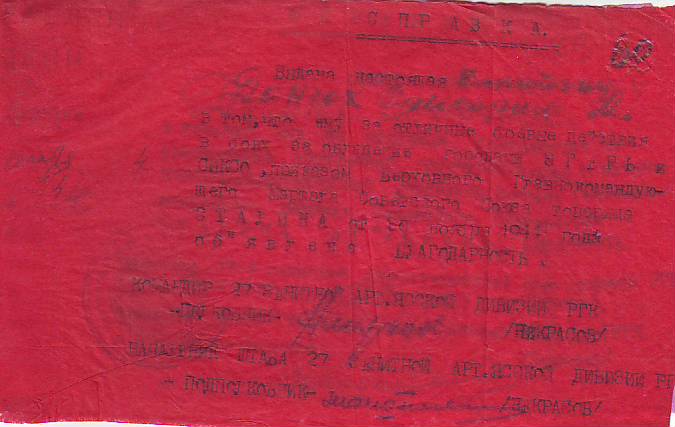 СПРАВКА.
Выдана настоящая
в том, что ему за отличные боевые действия
в боях за овладение городами ЭГЕР и
Сиксо, приказом Верховного Главнокомандую-
щего Маршала Советского Союза товарища
СТАЛИНА от 30 ноября 1944 года
об"явлена БЛАГОДАРНОСТЬ.
КОМАНДИР 27 ЗЕНИТНОЙ АРТ. ЯССКОЙ ДИВИЗИИ РГК
-ПОЛКОВНИК- /НЕКРАСОВ/
НАЧАЛЬНИК ШТАБА 27 ЗЕНИТНОЙ АРТ. ЯССКОЙ ДИВИЗИИ РГ
- ПОДПОЛКОВНИК-